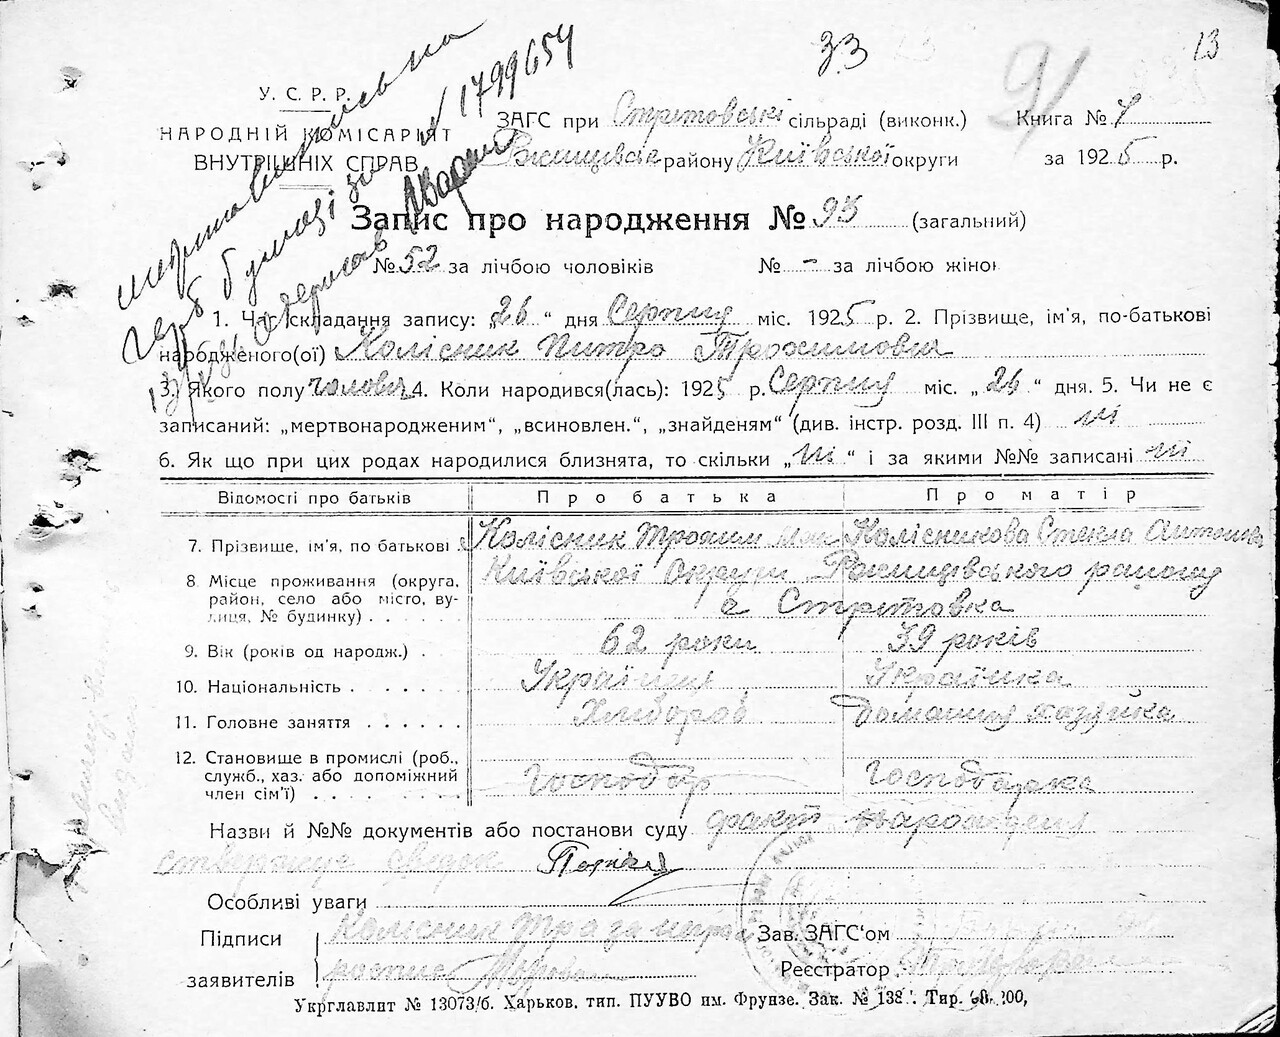 33
13
91
У. С. Р. Р.
НАРОДНІЙ КОМІСАРІЯТ
ВНУТРІШНІХ СПРАВ
№ 1799654
ЗАГС при Стрітовські сільраді (виконк.)
Книга № 1
Ржищевськ району Київської округи
за 1925 р.
Запис про народження № 93 (загальний)
№ 52 за лічбою чоловіків № - за лічбою жінок
1. Час складання запису: „26“ дня Серпня міс. 1925 р. 2. Прізвище, ім'я, по-батькові
народженого(ої) Колісник Питро Трохимович
3. Якого полу чоловіч 4. Коли народився(лась): 1925 р. Серпня міс. „26“ дня. 5. Чи не є
записаний: „мертвонародженим“, „всиновлен.“, „знайденям“ (див. інстр. розд. III п. 4) ні
6. Як що при цих родах народилися близнята, то скільки „ні“ і за якими №№ записані ні
Відомості про батьків Про батька Про матір
7. Прізвище, ім'я, по батькові Колісник Трохим Колісникова Стекла Антонова
8 Місце проживання (округа, район, село або місто, вулиця, № будинку) Київської округи Ржищівського району
с Стрітовка
9. Вік (років од народж.) 62 роки 39 років
10. Національність Українец Українка
11. Головне заняття Хлібороб домашня хазяйка
12. Становище в промислі (роб., служб., хаз. або допоміжний член сім'ї) Господар Господарка
Назви й №№ документів або постанови суду факт народження
стверджує свідок
Особливі уваги
Підписи заявителів Колісник Тро за негра
роспис
Зав. ЗАГС'ом
Реєстратор
Укрглавлит № 13073/б. Харьков, тип. ПУУВО им. Фрунзе. Зак. № 138 Тир.